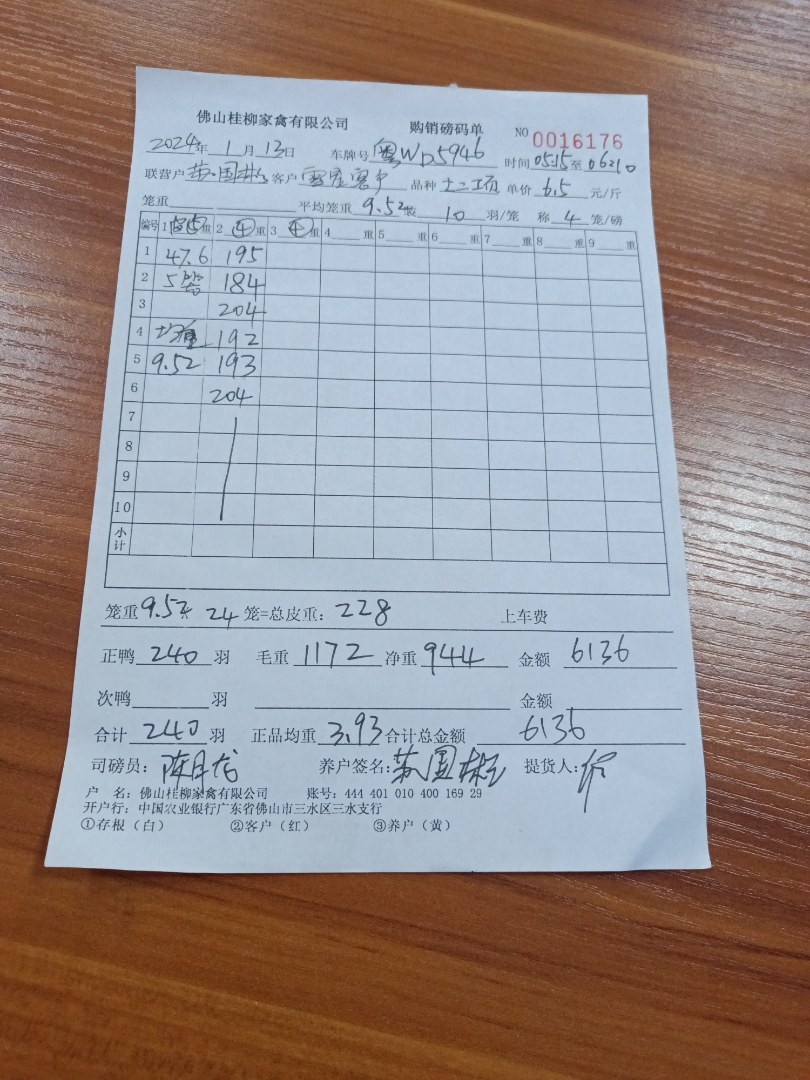 佛山桂柳家禽有限公司 购销磅码单 NO 0016176
2024年 1 月 13日 车牌号 粤WD5946 时间 0515至 0620
联营户 国彬 客户 客户 品种 土二项 单价 6.5 元/斤
笼重 平均笼重 9.52 10 羽/笼 称 4 笼/磅
编号 1 重 2 重 3 重 4 重 5 重 6 重 7 重 8 重 9 重
1 47.6 195
2 5 184
3 204
4 均重 192
5 9.52 193
6 204
7
8
9
10
小计
笼重 9.52 24 笼=总皮重: 228 上车费
正鸭 240 羽 毛重 1172 净重 944 金额 6136
次鸭 羽 金额
合计 240 羽 正品均重 3.93 合计总金额 6136
司磅员: 陈月龙 养户签名: 国彬 提货人:
户 名: 佛山桂柳家禽有限公司 账号: 444 401 010 400 169 29
开户行: 中国农业银行广东省佛山市三水区三水支行
①存根(白) ②客户(红) ③养户(黄)